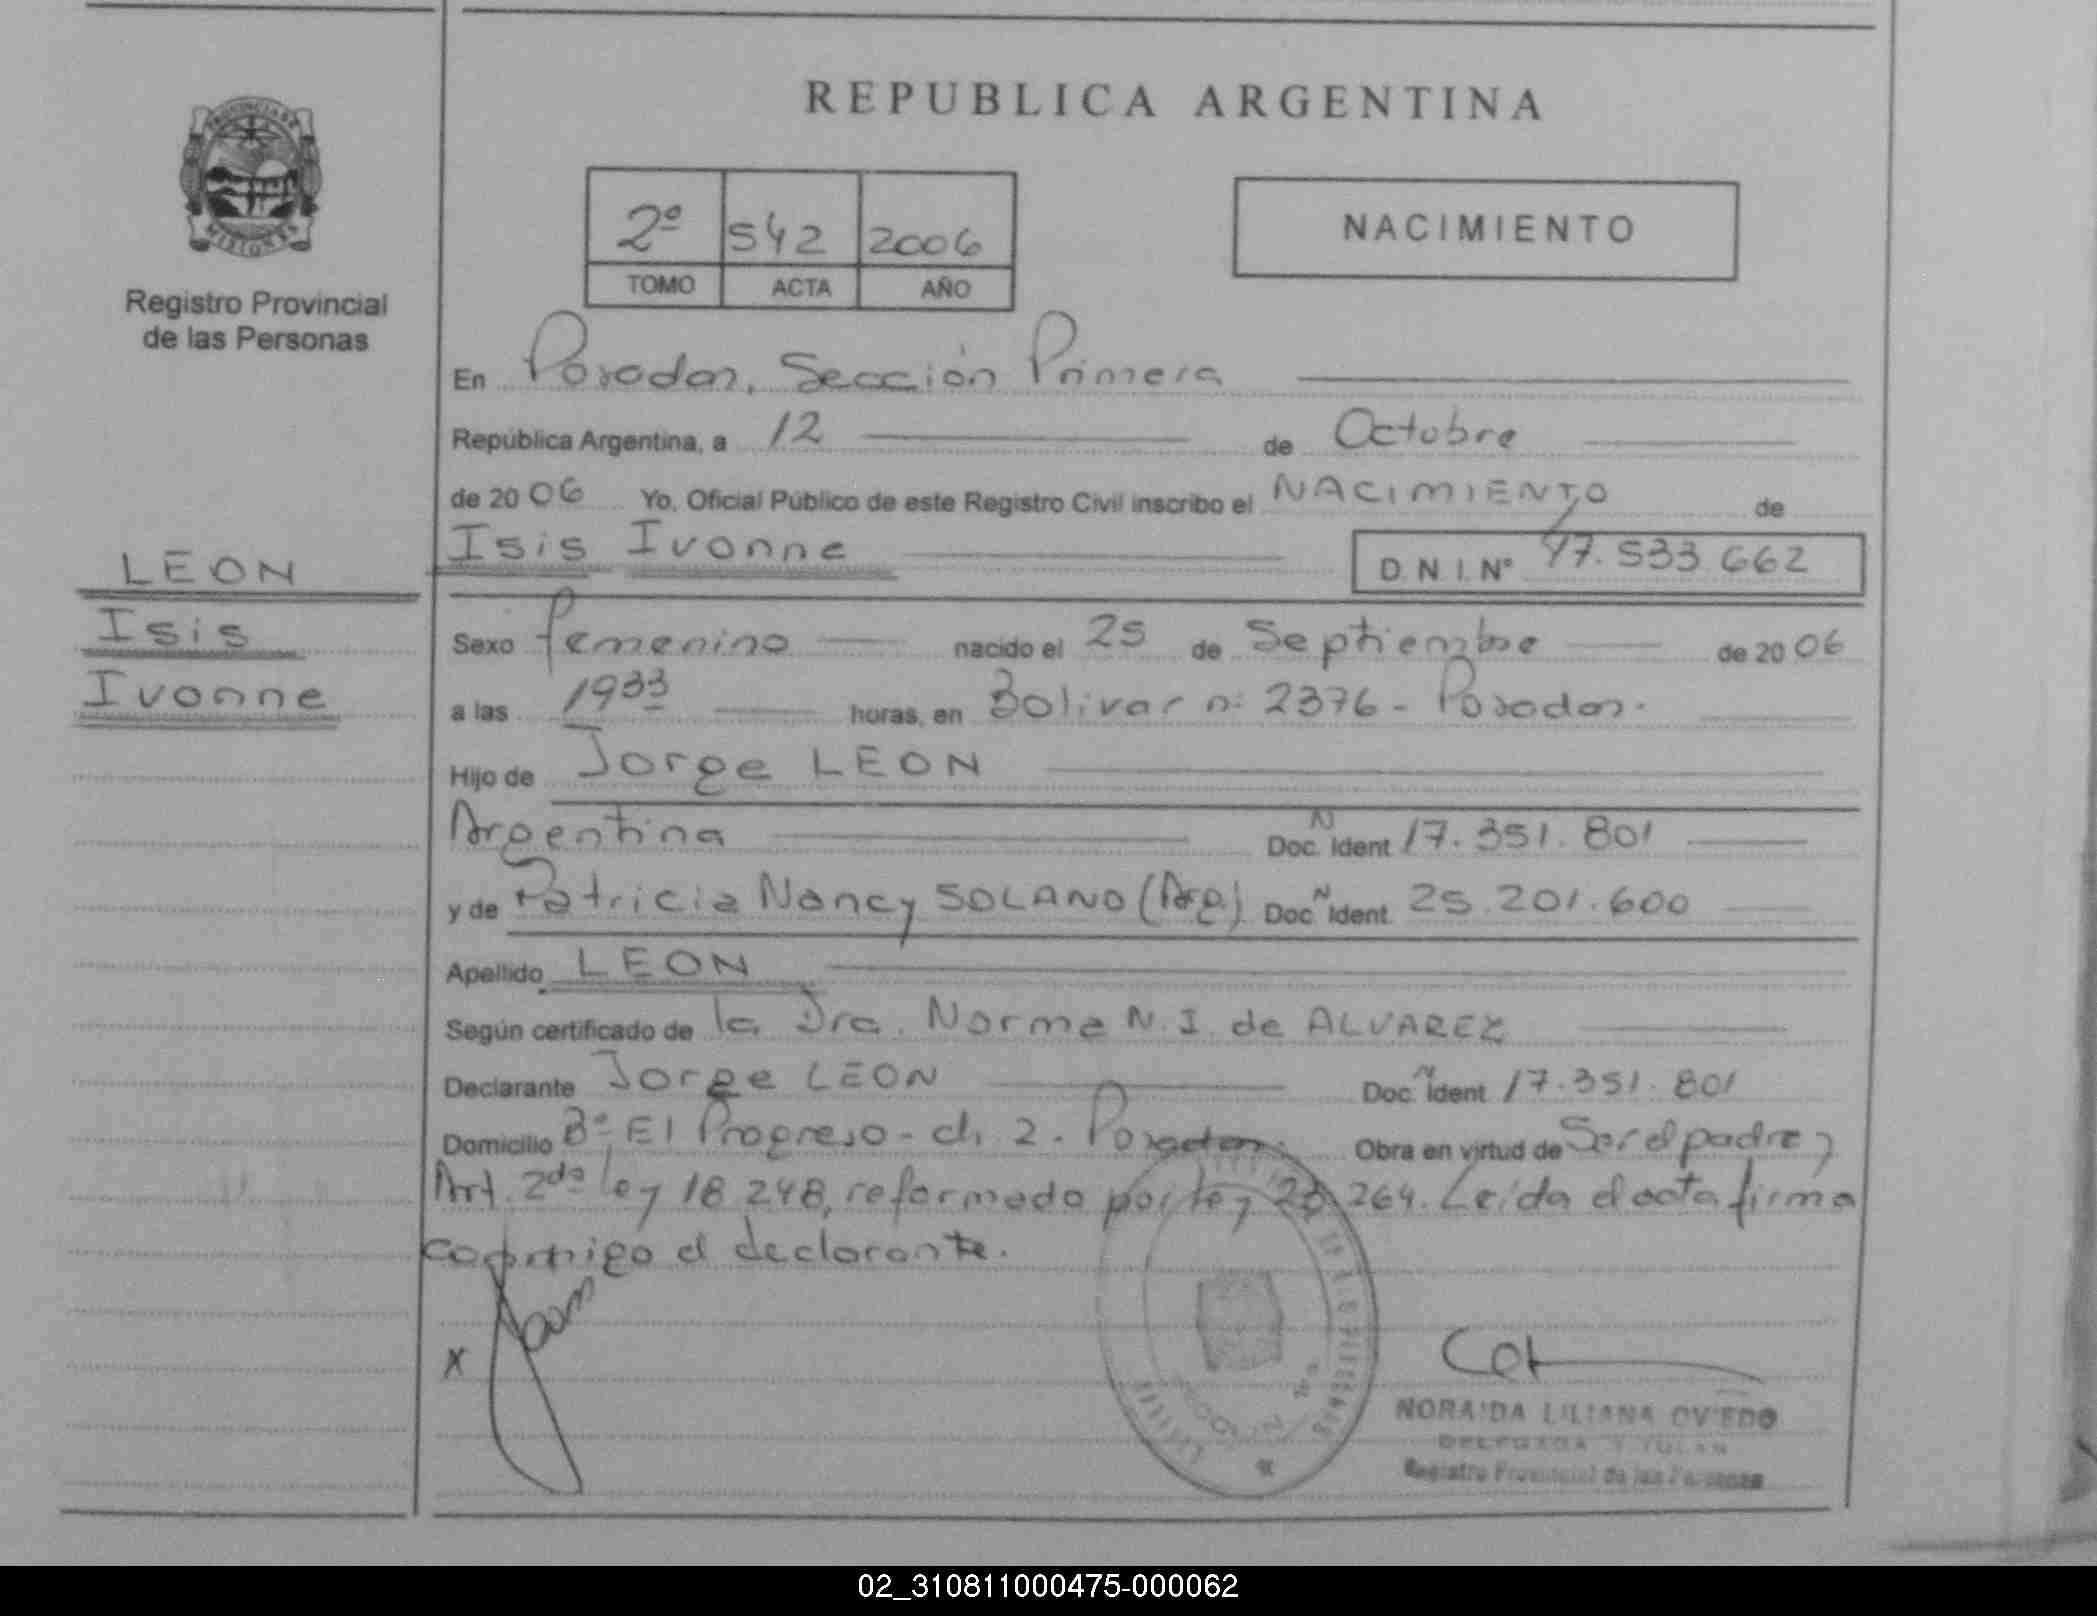 REPUBLICA ARGENTINA
PROVINCIA DE
MISIONES
Registro Provincial
de las Personas
2º 542 2006
TOMO ACTA AÑO
NACIMIENTO
En Posadas, Sección Primera
República Argentina, a 12 de Octubre
de 2006 Yo, Oficial Público de este Registro Civil inscribo el NACIMIENTO de
Isis Ivonne D.N.I.Nº 47.533.662
LEON
Isis
Ivonne
Sexo femenino nacido el 25 de Septiembre de 2006
a las 1933 horas, en Bolivar n: 2376 - Posadas.
Hijo de Jorge LEON
Argentina Doc. N Ident 17.351.801
y de Patricia Nancy SOLANO (Arg.) Doc. N Ident. 25.201.600
Apellido LEON
Según certificado de la Dra. Norma N. I. de ALVAREZ
Declarante Jorge LEON Doc. N Ident 17.351.801
Domicilio Bº El Progreso - ch 2. Posadas. Obra en virtud de Ser el padre y
Art. 2do ley 18 248, reformado por ley 23 264. Leída el acta firma
conmigo el declarante.
X
NORAIDA LILIANA OVIEDO
DELEGADA TITULAR
Registro Provincial de las Personas
02_310811000475-000062